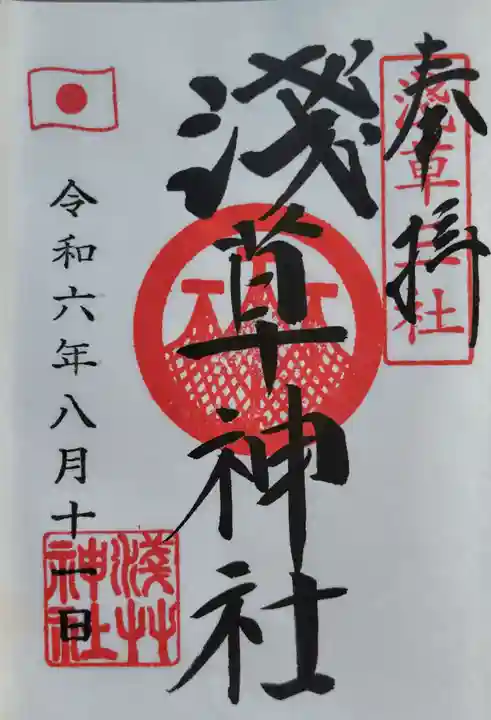 奉拝
浅草神社
淺草神社
令和六年八月十一日
淺草
神社